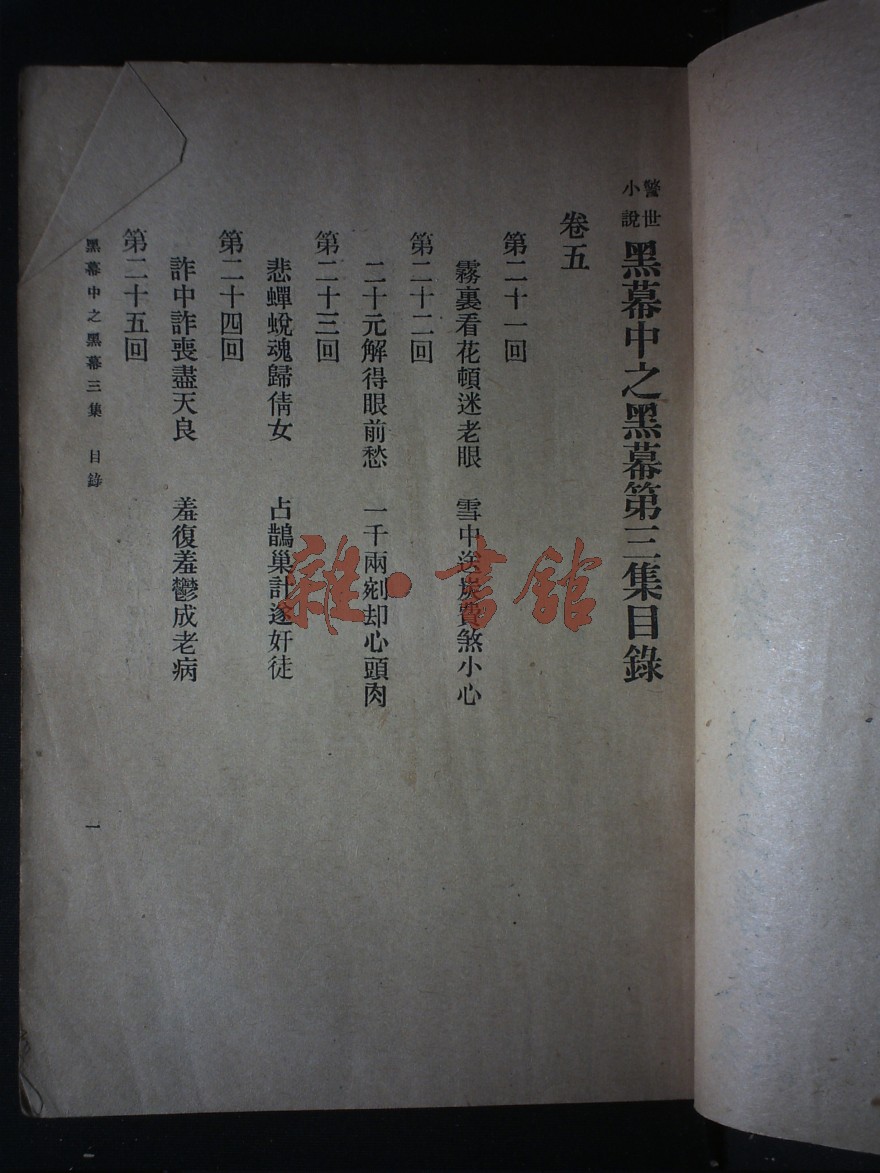 警世小說 黑幕中之黑幕第三集目錄
卷五
第二十一回
霧裏看花頓迷老眼 雪中送炭費煞小心
第二十二回
二十元解得眼前愁 一千兩剜却心頭肉
第二十三回
悲蟬蛻魂歸倩女 占鵲巢計遂奸徒
第二十四回
詐中詐喪盡天良 羞復羞鬱成老病
第二十五回
黑幕中之黑幕三集 目錄 一
雜·書館